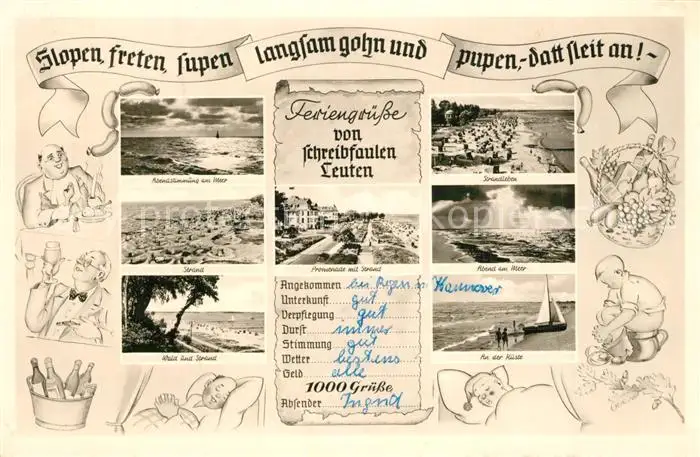 Slopen, freten, supen, langsam gohn und pupen,-datt sleit an!~
Feriengrüße
von
schreibfaulen
Leuten
Abendstimmung am Meer
Strandleben
Strand
Promenade mit Strand
Abend am Meer
Wald und Strand
An der Küste
Angekommen bei Regen in Hannover
Unterkunft gut
Verpflegung gut
Durst immer
Stimmung gut
Wetter bestens
Geld alle
1000 Grüße
Absender Ingrid